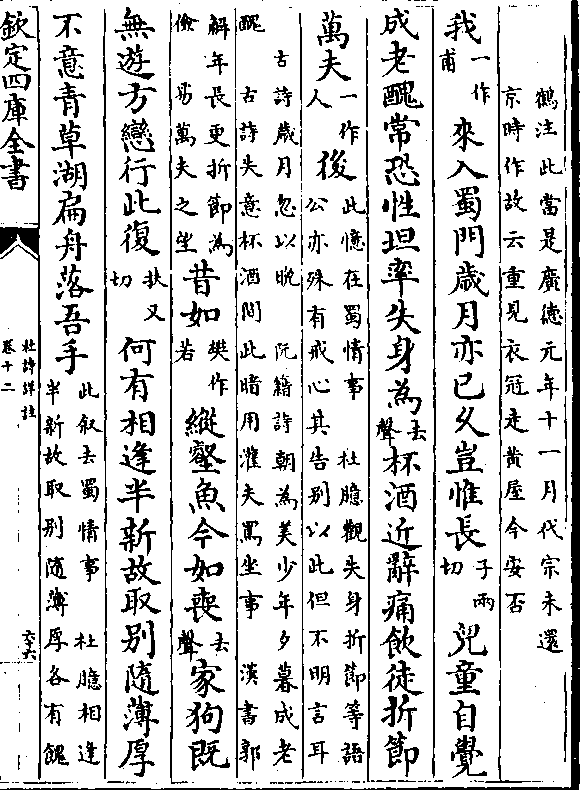 鶴注此當是廣德元年十一月代宗未還
京時作故云重見衣冠走黃屋今安否
我一作甫來入蜀門歲月亦已久豈惟長子兩切兒童自覺
成老醜常恐性坦率失身為去聲杯酒近辭痛飲徒折節
萬夫一作人後此憶在蜀情事 杜臆觀失身折節等語公亦殊有戒心其告別以此但不明言耳
古詩歲月忽以晚 阮籍詩朝為美少年夕暮成老
醜 古詩失意杯酒間此暗用灌夫罵坐事 漢書郭
解年長更折節為儉 易萬夫之望昔如樊作若縱壑魚今如喪去聲家狗既
無遊方戀行此復扶又切何有相逢半新故取別隨薄厚
不意青草湖扁舟落吾手此叙去蜀情事 杜臆相逢半新故取別隨薄厚各有餽
欽定四庫全書
杜詩詳註
卷十二
六十六